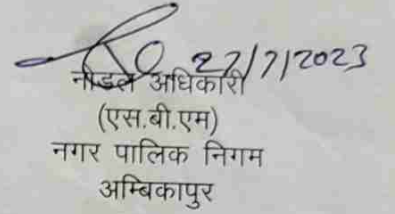 27/7/2023
नोडल अधिकारी
(एस.बी.एम)
नगर पालिक निगम
अम्बिकापुर